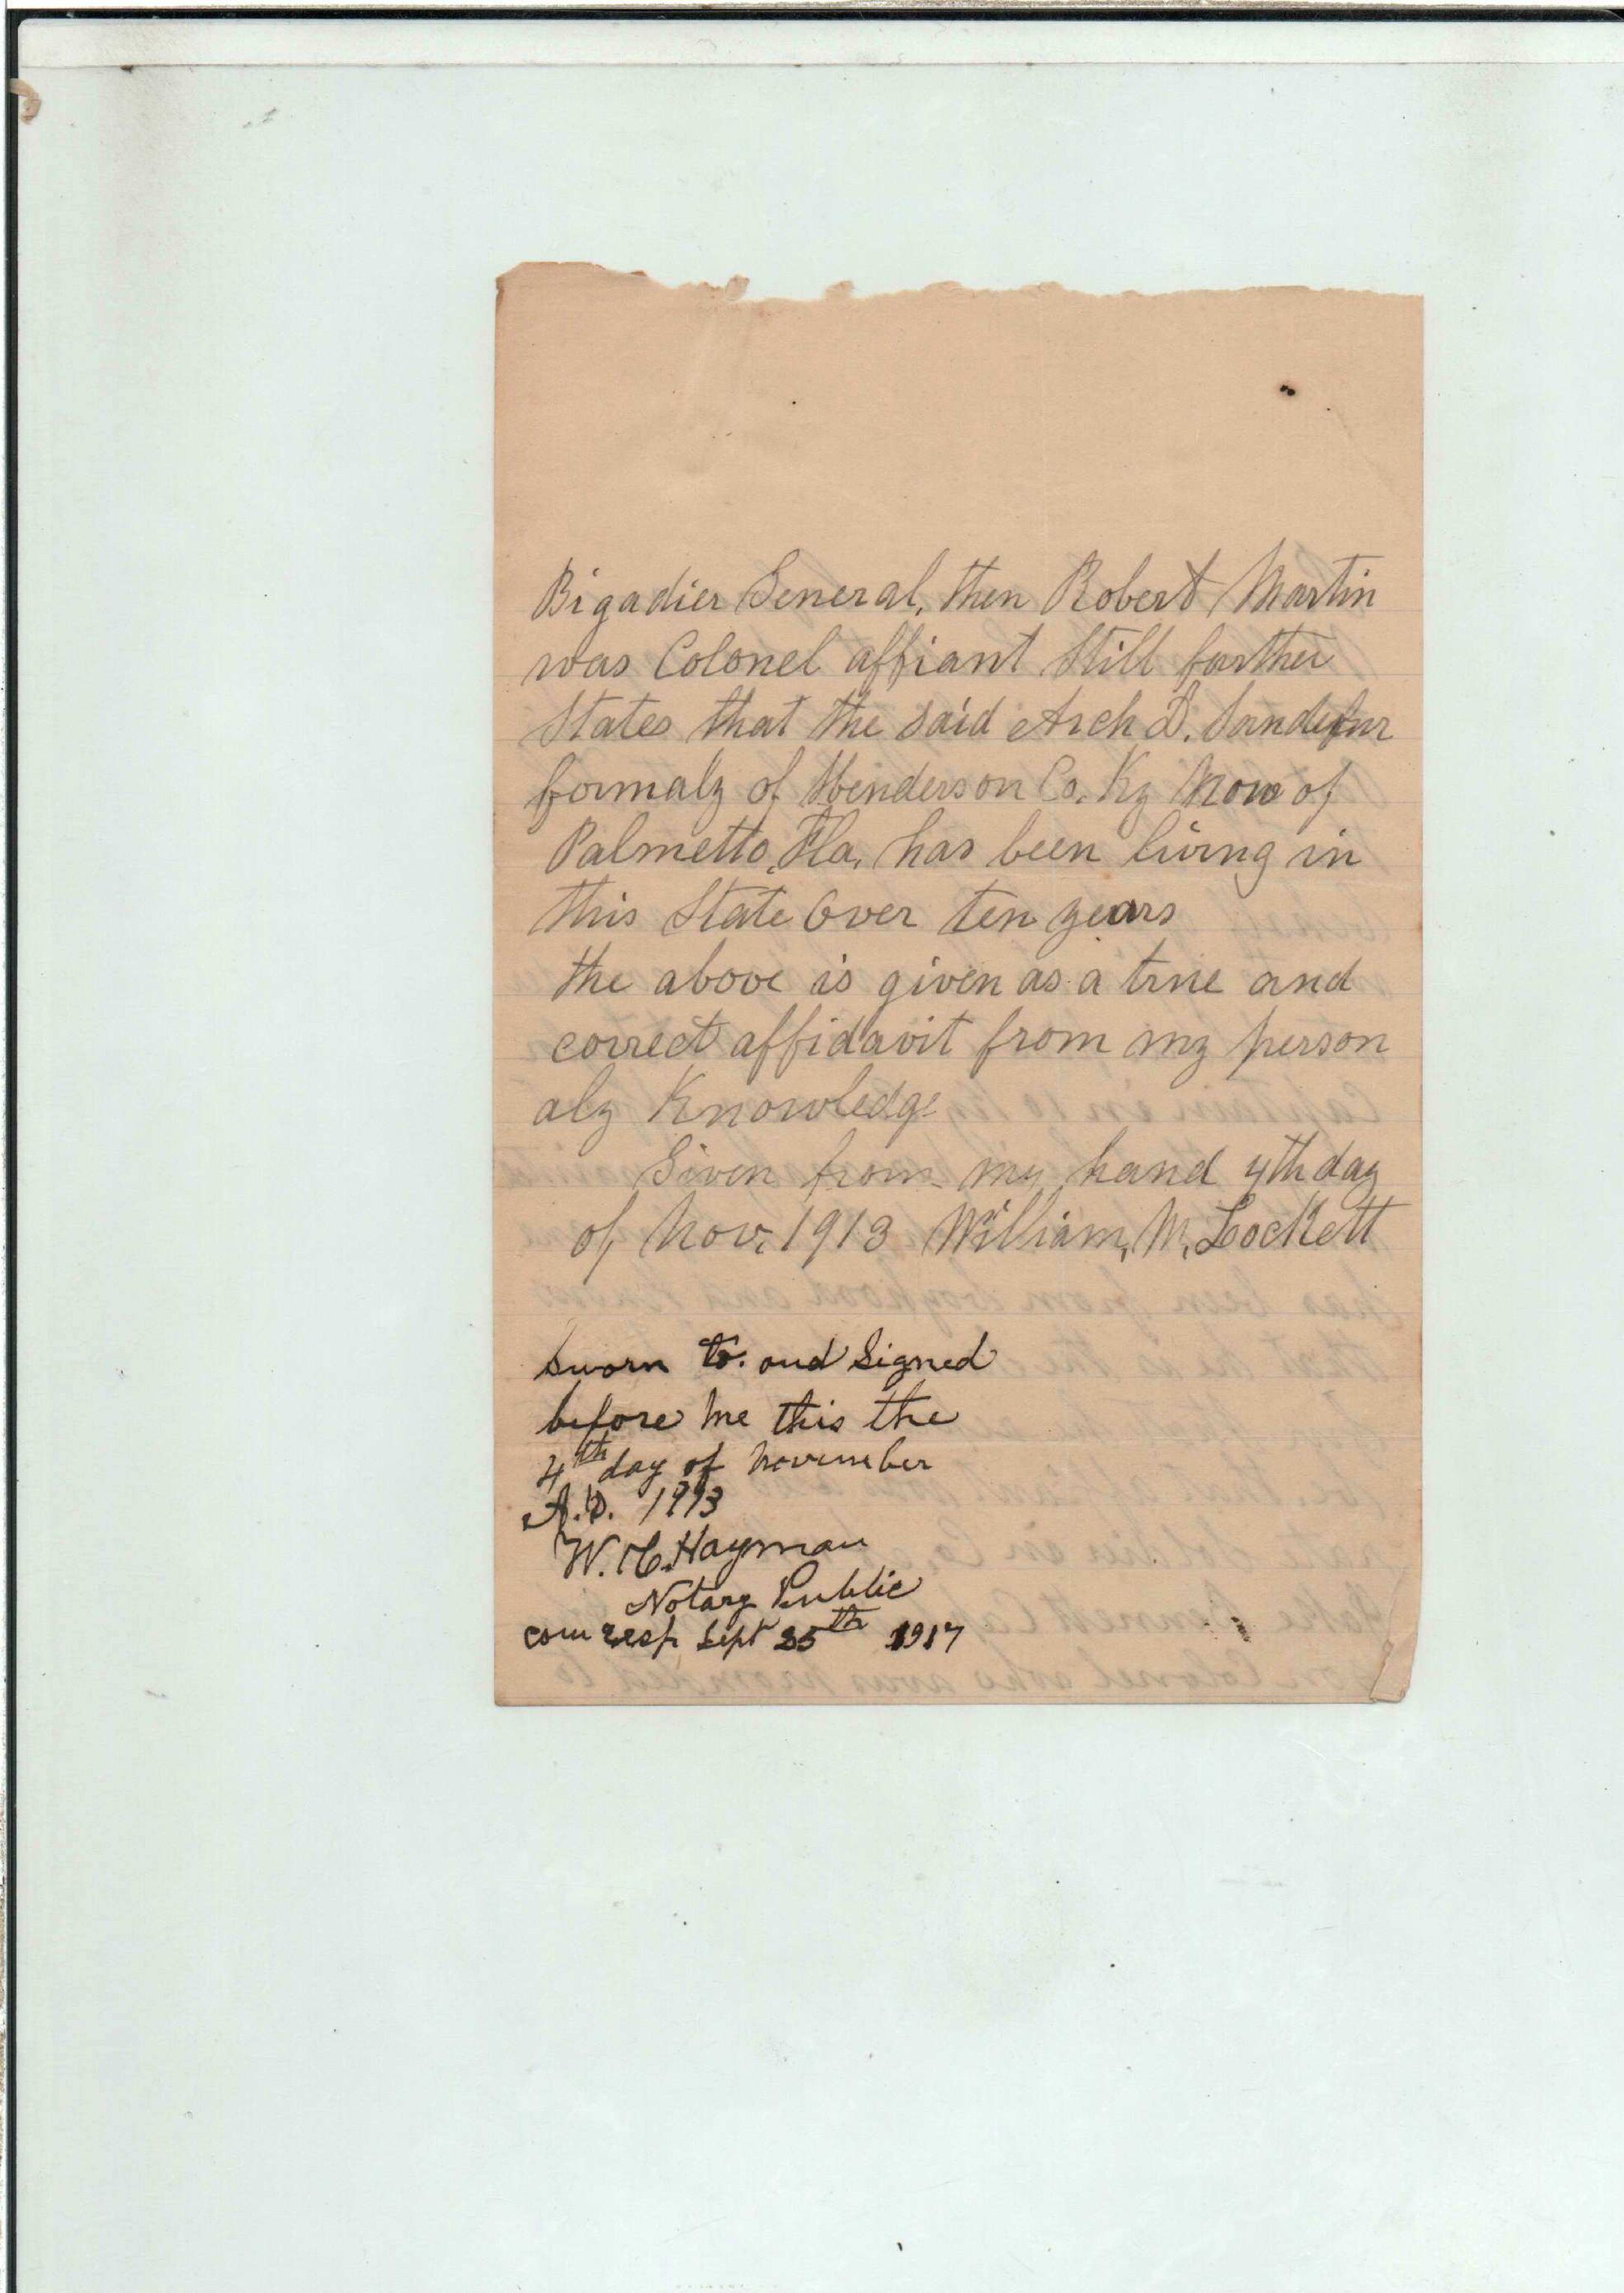 Bigadier General, then Robert Martin
was Colonel affiant Still further
States that the said Arch D. Sandefur
formaly of Henderson Co. Ky Now of
Palmetto, Fla, has been living in
this State Over ten years
the above is given as a true and
correct affidavit from my person
aly Knowledge
Given from my hand 4th day
of Nov. 1913 William, M, Lockett
Sworn to. and Signed
before me this the
4th day of November
A.D. 1913
W. H. Hayman
Notary Public
com exp Sept 25th 1917